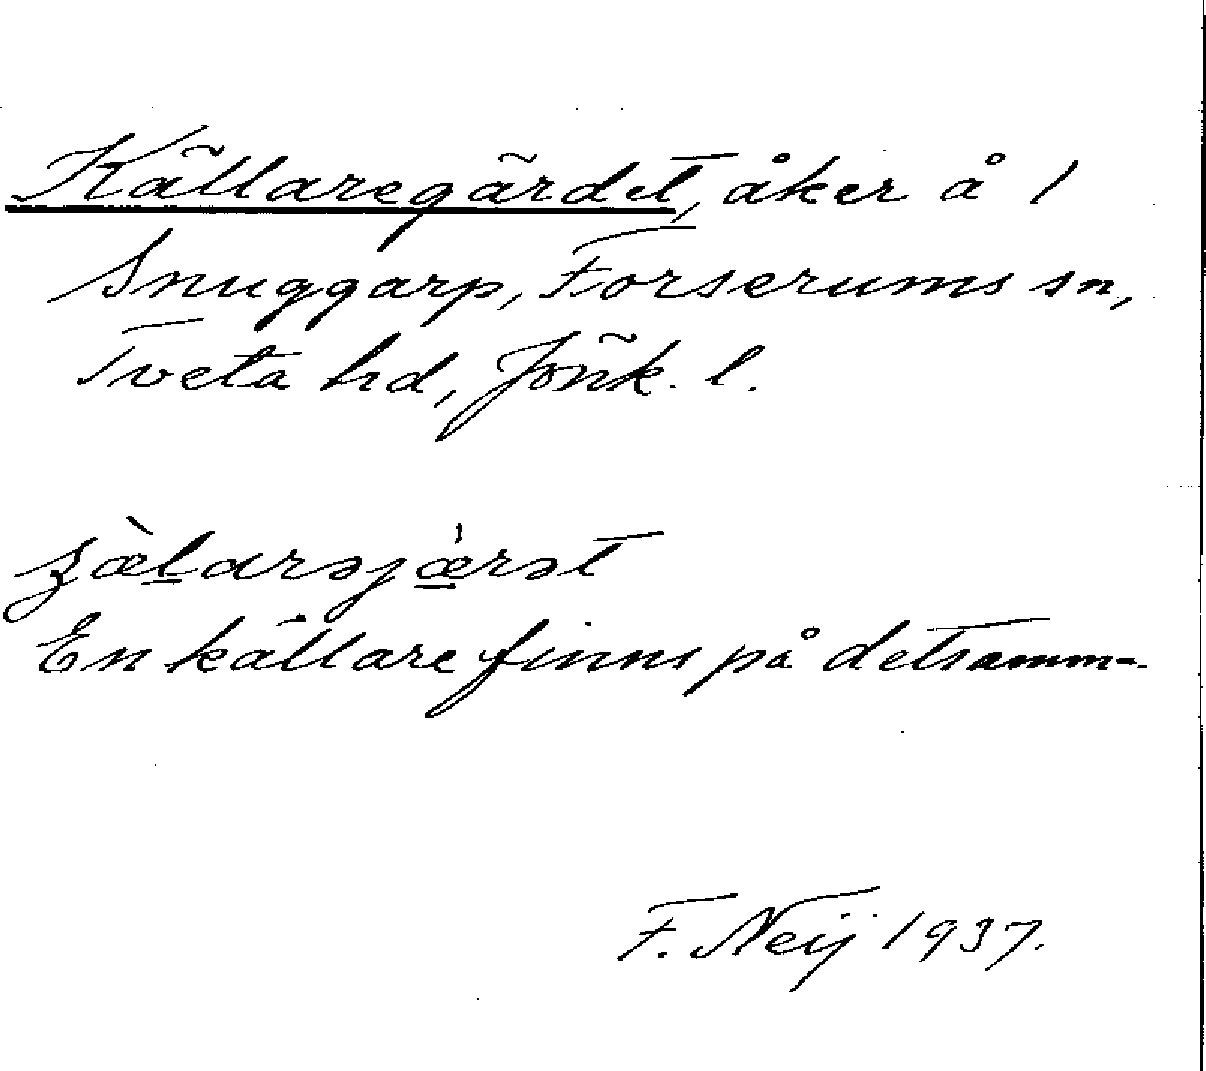 Källaregärdet, åker å 1
Snuggarp, Forserums sn,
Tveta hd, Jönk. l.
En källare finns på detsamm-
F. Neij 1937.